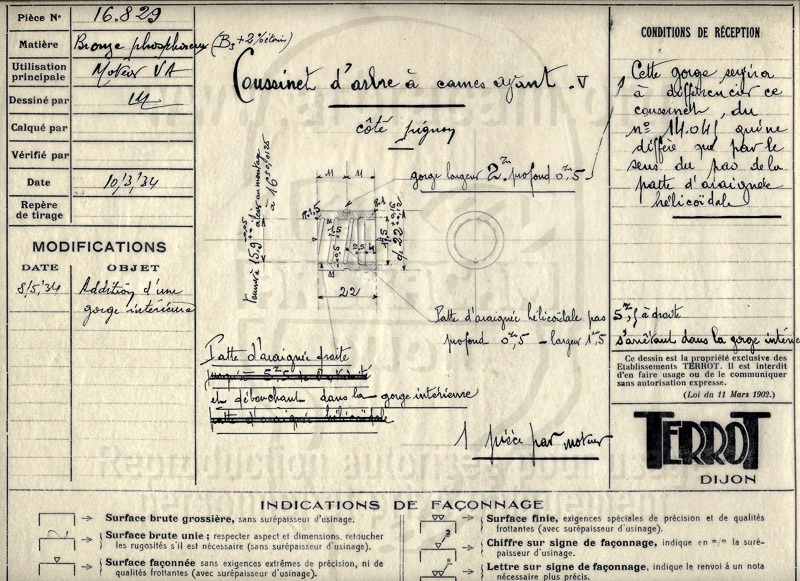 Pièce N° 16.829
Matière Bronze phosphoreux (B3 + 2% étain)
Utilisation principale Moteur VA
Dessiné par
Calqué par
Vérifié par
Date 10/3/34
Repère de tirage
MODIFICATIONS
DATE OBJET
8/5/34 Addition d'une
gorge intérieure
Coussinet d'arbre à cames ayant
côté pignon
gorge largeur 2 profond 0,5
11 11
1,5
2,5
22
Patte d'araignée hélicoïdale pas 5 à droite
profond 0,5 - largeur 1,5 s'arrêtant dans la gorge intérie
Patte d'araignée droite
et débouchant dans la gorge intérieure
patte d'araignée hélicoïdale
1 pièce par moteur
CONDITIONS DE RÉCEPTION
Cette gorge servira
à différencier ce
coussinet, du
n° 14.041 qui ne
diffère que par le
sens du pas de la
patte d'araignée
hélicoïdale
Ce dessin est la propriété exclusive des
Etablissements TERROT. Il est interdit
d'en faire usage ou de le communiquer
sans autorisation expresse.
(Loi du 11 Mars 1902.)
TERROT
DIJON
INDICATIONS DE FAÇONNAGE
Surface brute grossière, sans surépaisseur d'usinage.
Surface brute unie ; respecter aspect et dimensions, retoucher
les rugosités s'il est nécessaire (sans surépaisseur d'usinage).
Surface façonnée sans exigences extrêmes de précision, ni de
qualités frottantes (avec surépaisseur d'usinage).
Surface finie, exigences spéciales de précision et de qualités
frottantes (avec surépaisseur d'usinage).
Chiffre sur signe de façonnage, indique en m/m la suré-
paisseur d'usinage.
Lettre sur signe de façonnage, indique le renvoi à un nota
nécessaire plus précis.